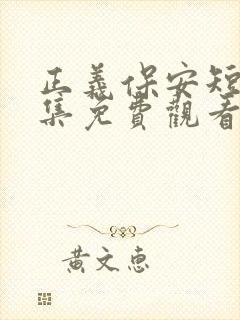 正義保安短
集免費觀看
黃文惠